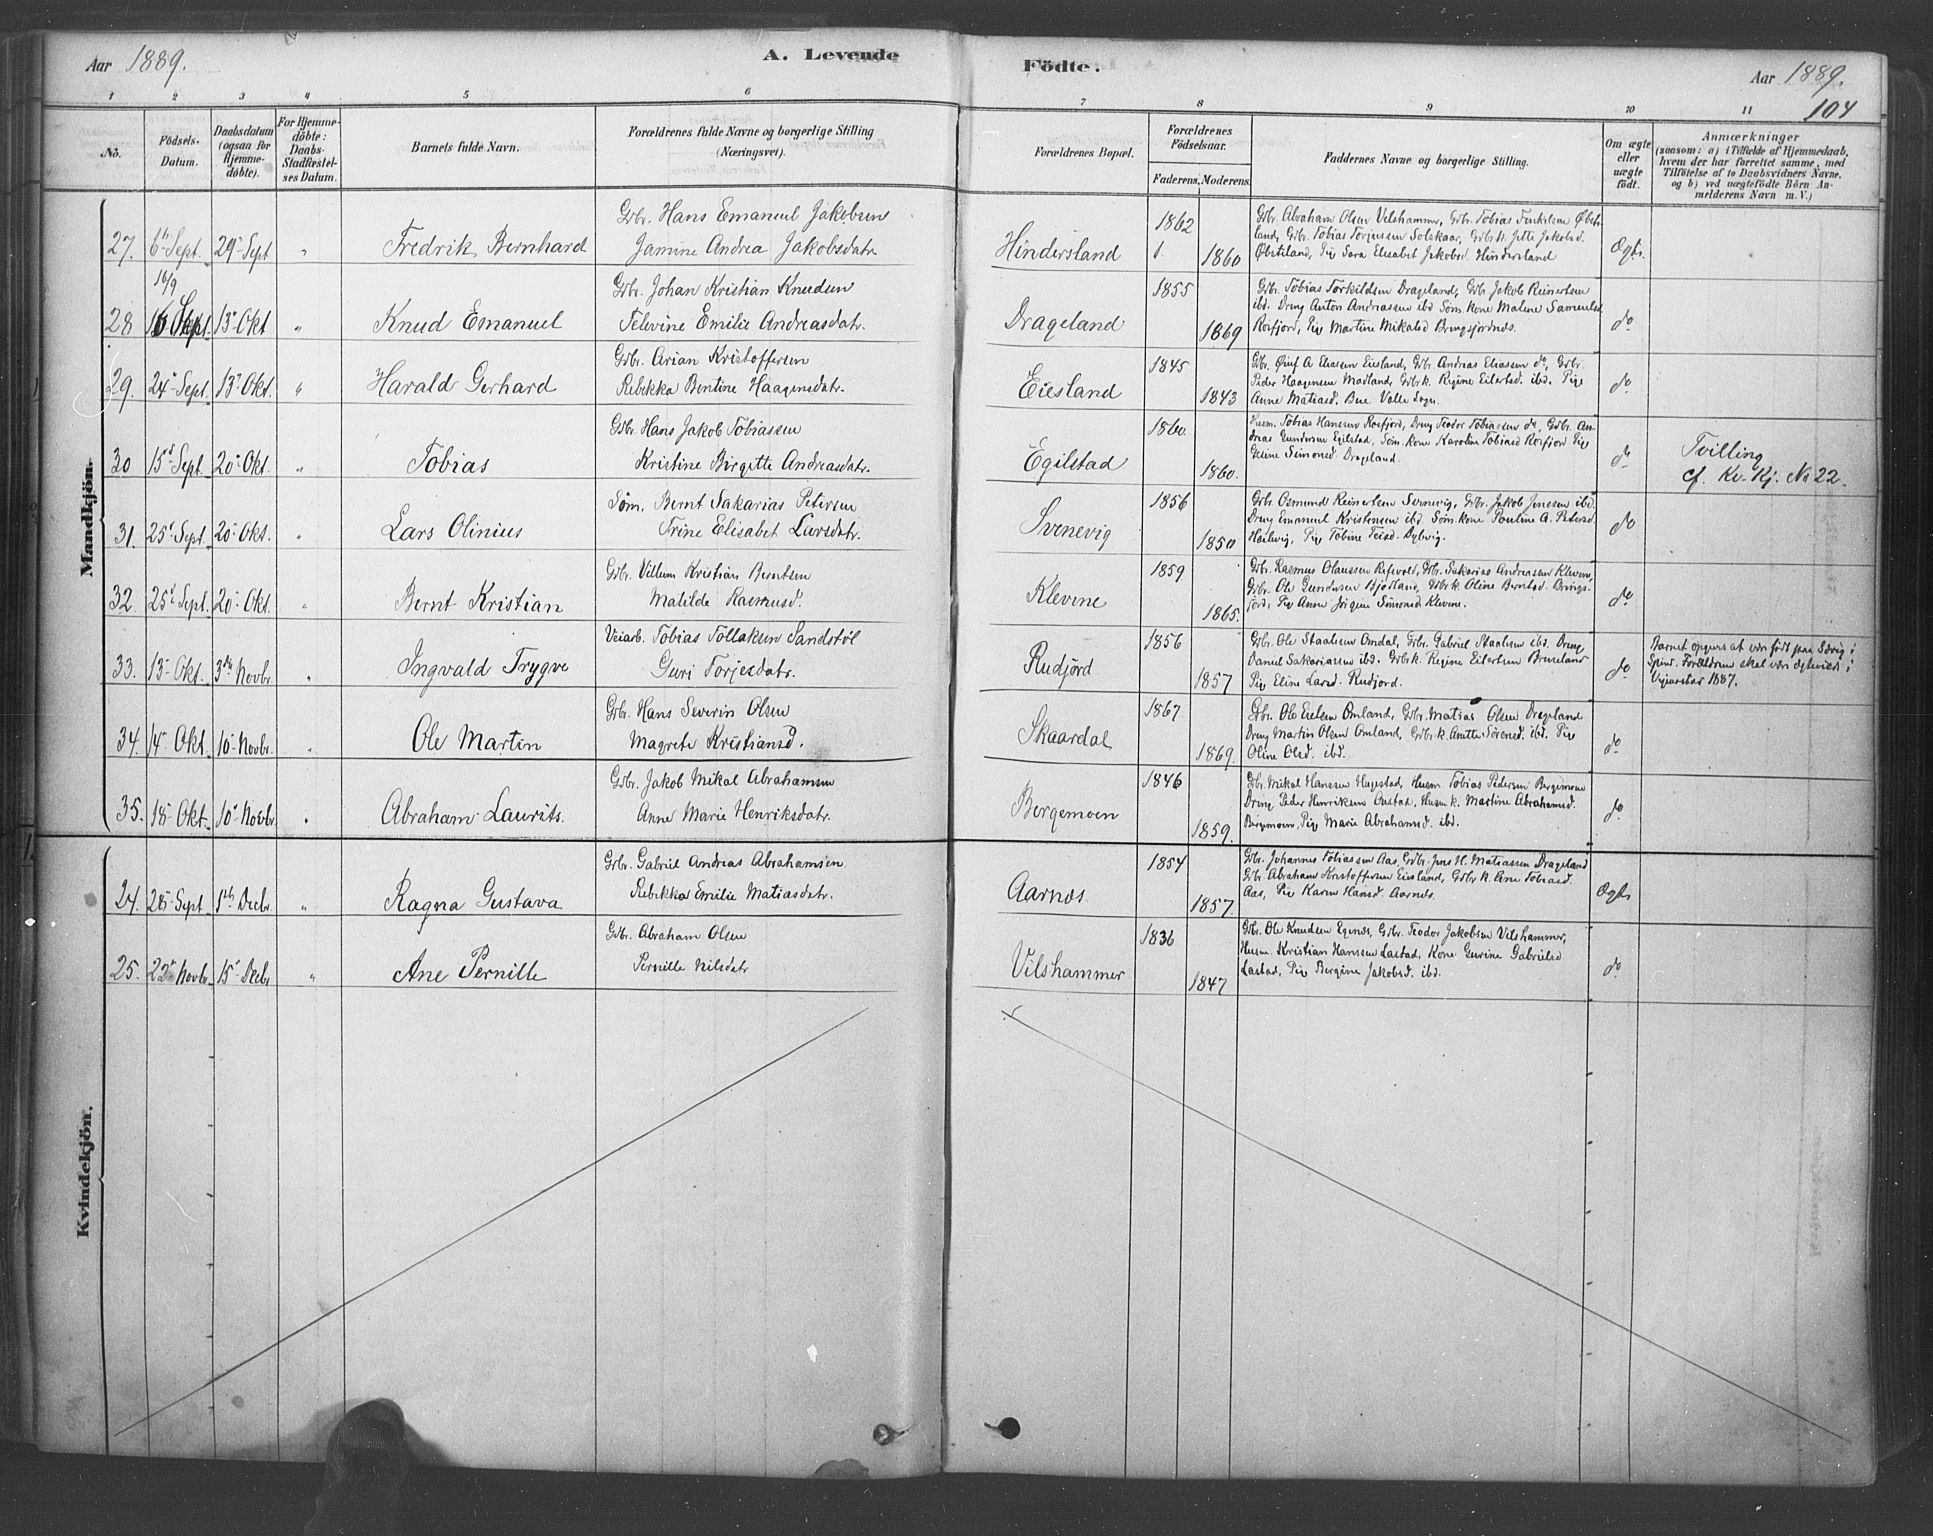 Aar 1889.
A. Levende
Födte.
Aar 1889.
104
1 2 3 4 5 6 7 8 9 10 11
No.
Födsels-
Datum.
Daabsdatum
(ogsaa for
Hjemme-
döbte).
For Hjemme-
döbte:
Daabs-
Stadfæstel-
ses Datum.
Barnets fulde Navn.
Forældrenes fulde Navne og borgerlige Stilling
(Næringsvei).
Forældrenes Bopæl.
Forældrenes
Födselsaar.
Faderens. Moderens.
Faddernes Navne og borgerlige Stilling.
Om ægte
eller
uægte
födt.
Anmærkninger
(saasom: a) i Tilfælde af Hjemmedaab,
hvem der har forrettet samme, med
Tilföielse af to Daabsvidners Navne.
og b) ved uægtefödte Börn An-
melderens Navn m. V.)
Mandkjön.
27. 6th Sept. 29- Sept " Fredrik Bernhard
Gbr. Hans Emanuel Jakobsen
Jamine Andrea Jakobsdatr.
Hindersland
1862
1860
Gbr. Abraham Olsen Vilshammer, Gbr. Tobias Tenkelsen Øbst-
land, Gbr. Tobias Torjussen Solskaar, Gbr k. Jette Jakobsd.
Øbstiland, Pig Sara Elisabet Jakobsd Hindersland
Ægte
16/9
28 16 Sept. 13- Okt " Knud Emanuel
Gbr. Johan Kristian Knudsen
Televine Emilie Andreasdatr.
Drageland
1855
1869
Gbr. Tobias Torkildsen Drageland, Gbr Jakob Reinertsen
ibd. Dreng Anton Andreassen ibd Søm. kone Malene Samuelsd
Rosfjord, Pig Martine Mikalsd Bringsfjordnes.
do
29. 24- Sept. 13- Okt. " Harald Gerhard
Gbr. Arian Kristoffersen
Rebekka Bentine Haagensdatr.
Eiesland
1845
1843
Gbr. Øiuf A Eliassen Eiesland, Gbr. Andreas Eliassen do, Gbr.
Peder Haagensen Marland, Gbr k. Regine Eilertsd. ibd. Pige
Anne Matiasd. Bue Valle Sogn.
do
30 15d Sept. 20- Okt. " Tobias
Gbr. Hans Jakob Tobiassen
Kristine Birgitte Andreasdatr.
Egilstad
1860.
1860.
Husm. Tobias Hanssen Rosfjord, Dreng Teodor Tobiassen do, Gbr. An-
dreas Gundersen Egilstad, Søm. kone Karoline Tobiasd Rosfjord Pig
Geline Simonsd. Drageland.
do
Tvilling
cf. Kv. Kj. No 22.
31. 25d Sept. 20- Okt. " Lars Olinius
Søm. Bernt Sakarias Petersen
Trine Elisabet Larsdatr.
Svenevig
1856
1850
Gbr. Osmund Reinertsen Svenevig, Gbr. Jakob Jensen ibd.
Dreng Emanuel Kristensen ibd Søm. kone Pauline A. Petersd.
do
32. 25d Sept. 20- Okt. " Bernt Kristian
Gbr. Villum Kristian Berntsen
Matilde Rasmusd.
Klevene
1859
1865.
Gbr. Rasmus Olaussen Refsvold, Gbr. Sakarias Andreassen Klevene,
Gbr. Ole Gundersen Bjørland, Gbr k. Oline Berntsd. Brings-
fjord, Pig Anne Jørgine Simonsd Klevene.
do
33. 13- Okt. 3die Novbr. " Ingvald Trygve
Veiarb. Tobias Tollaksen Sandstøl
Guri Torjesdatr.
Rudjord
1856
1857
Gbr. Ole Staalesen Omdal, Gbr. Gabriel Staalsen ibd. Dreng
Daniel Sakariassen ibd. Gbr k. Regine Eilertsen Bruseland
Pig Eline Larsd. Rudjord.
do
Barnet opgives at være født paa Særig i
Spind. Forældrene skal være ægteviede i
Vejenester 1887.
34. 14- Okt. 10- Novbr. " Ole Martin
Gbr. Hans Severin Olsen
Magrete Kristiansd.
Skaardal
1867
1869.
Gbr. Ole Eielsen Omland, Gbr. Matias Olsen Drageland
Dreng Martin Olsen Omland, Gbr k. Anette Sørensd. ibd. Pig
Oline Olsd. ibd.
do
35. 18- Okt. 10- Novbr. " Abraham Laurits.
Gbr. Jakob Mikal Abrahamsen
Anne Marie Henriksdatr.
Bergemoen
1846
1859.
Gbr. Mikal Hanssen Hægestad, Husm. Tobias Pedersen Bergemoen
Dreng Peder Henriksen Oustad, Husm k. Martine Abrahamsd.
Bergemoen, Pig Marie Abrahamsd. ibd.
do
Kvindekjön.
24. 28- Sept. 1ste Decbr. " Ragna Gustava
Gbr. Gabriel Andreas Abrahamsen
Rebekka Emilie Matiasdatr.
Aarnes
1854
1857.
Gbr. Johannes Tobiassen Aas, Gbr. Jens H. Matiassen Drageland
Gbr. Abraham Kristoffersen Eiesland, Gbr k. Ane Tobiasd.
Aas, Pig Karen Hansd. Aarnes.
Ægte
25. 22- Novbr. 15- Decbr " Ane Pernille
Gbr. Abraham Olsen
Pernille Nilsdatr
Vilshammer
1836
1847
Gbr. Ole Knudsen Egenes, Gbr. Teodor Jakobsen Vilshammer,
Husm. Kristian Hanssen Lastad, Kone Gurine Gabrielsd
Lastad, Pig Bergine Jakobsd. ibd.
do